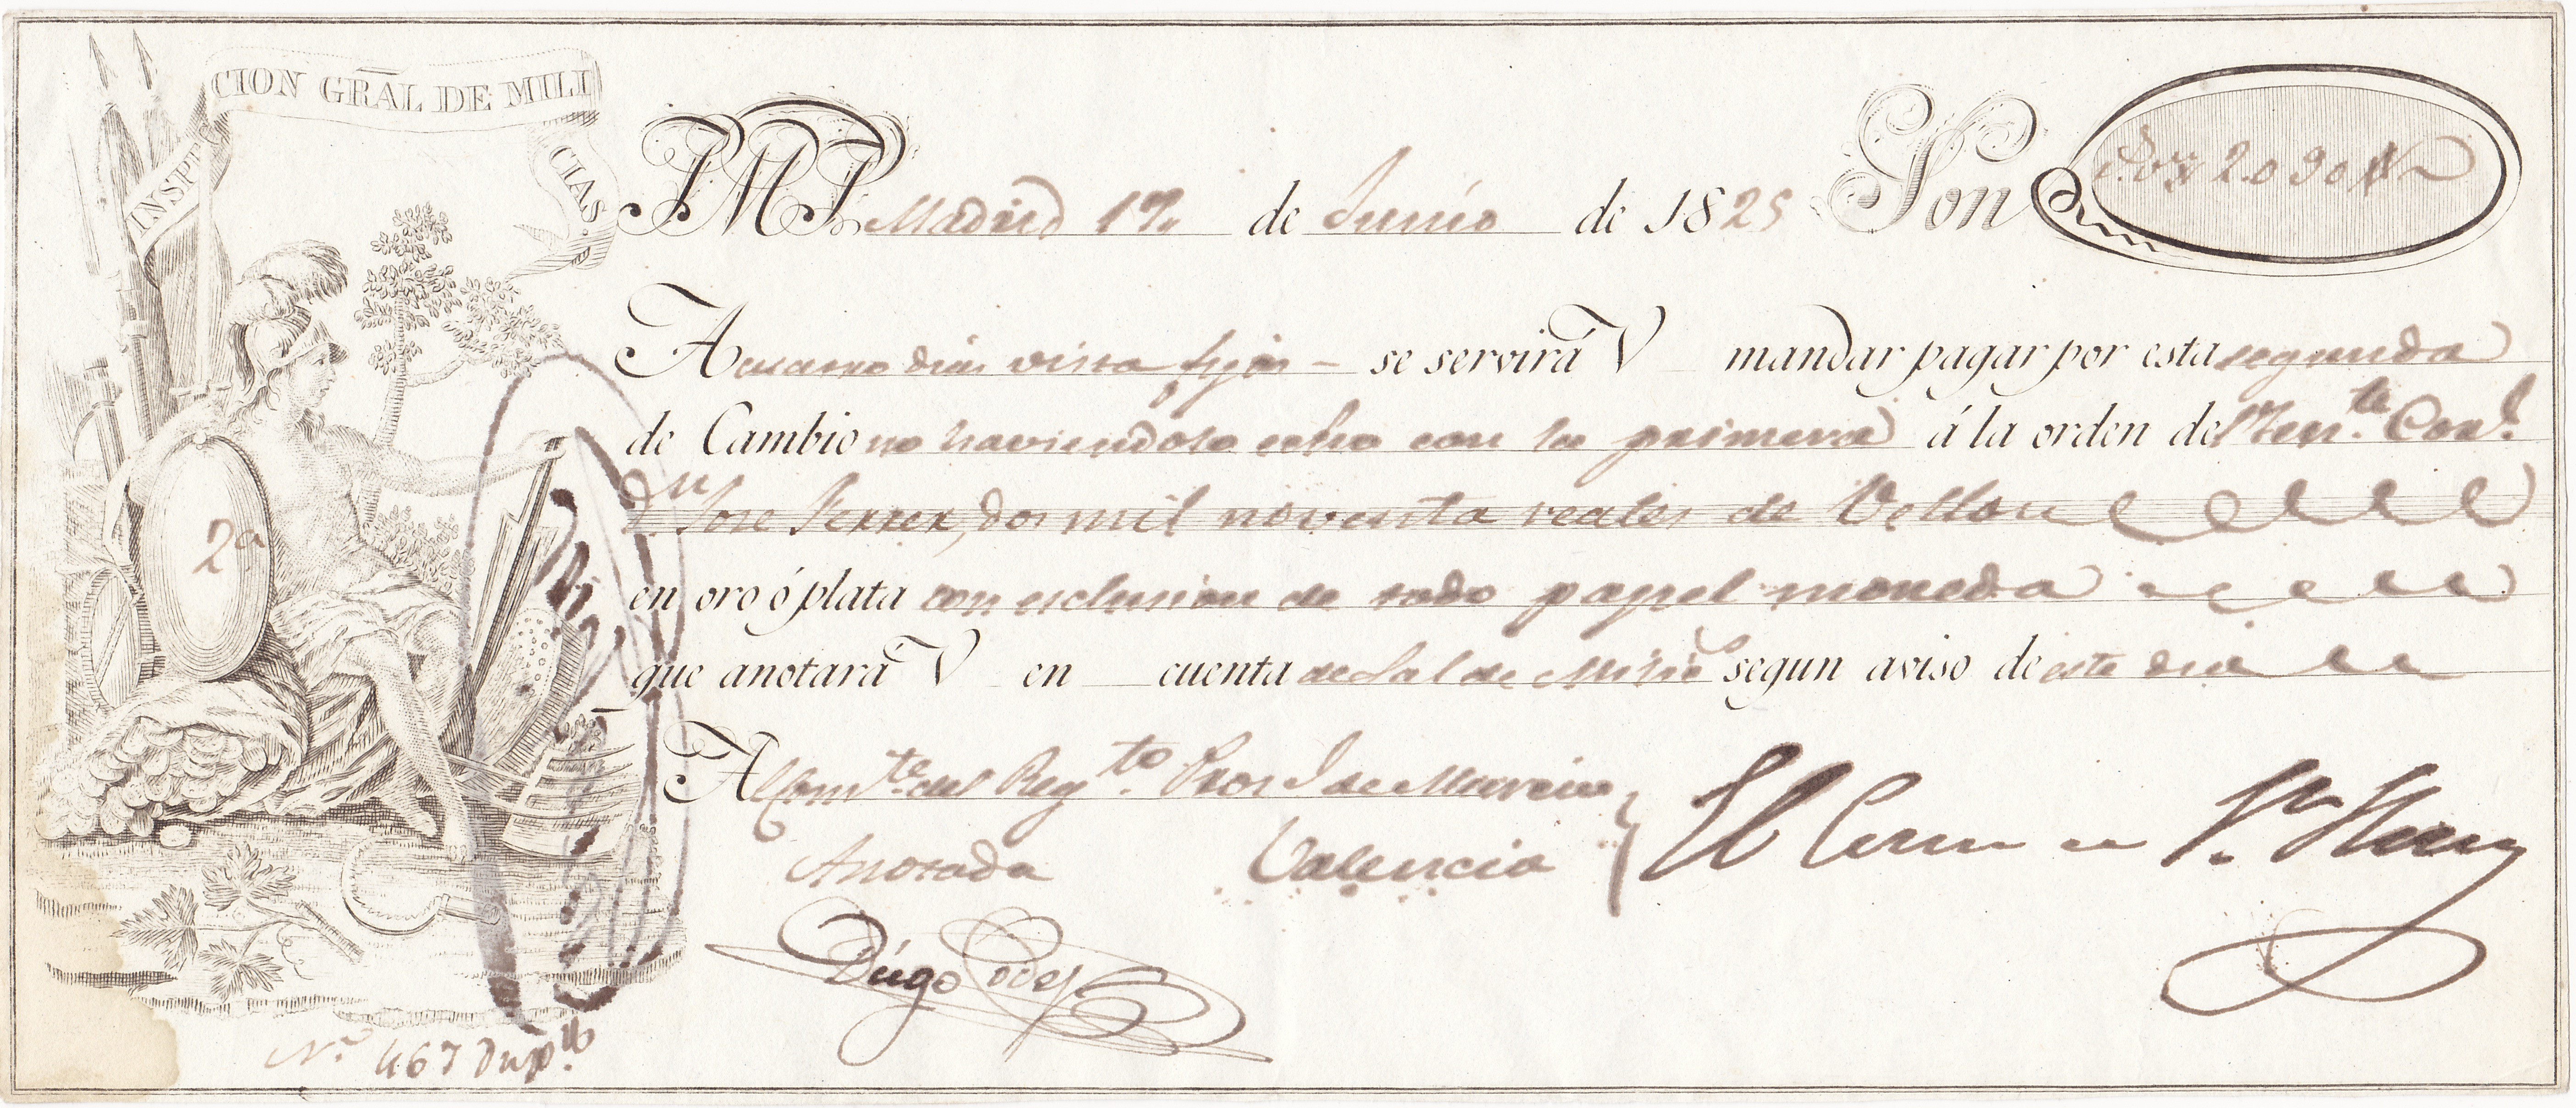 INSPECCION GRAL DE MILICIAS.
Madrid 17 de Junio de 1825 Son 2.090
A cuatro dias vista fijos - se servirá V mandar pagar por esta segunda
de Cambio no haviendolo echo con la primera á la orden del Ten.te Cor.l
Dn Jose Ferrer, dos mil noventa reales de Vellon
en oro ó plata con esclusion de todo papel moneda
que anotará V en cuenta de segun aviso de este dia
Al Com.te del Reg.to Prov.l de Murcia
Anotada Valencia
El Conde de
Diego
2a
N.o 467 Dup.do